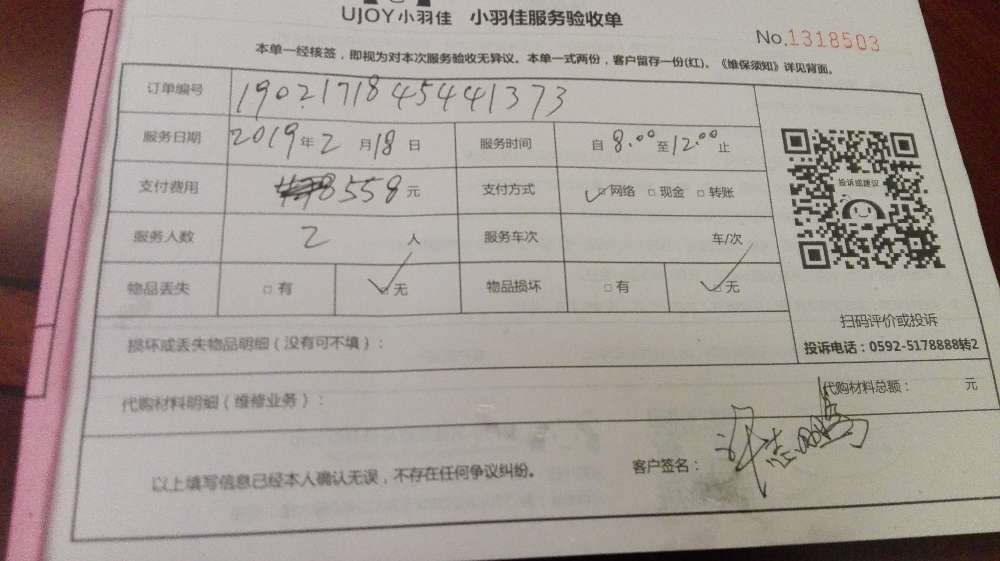 UJOY小羽佳 小羽佳服务验收单
No.1318503
本单一经核签，即视为对本次服务验收无异议。本单一式两份，客户留存一份(红)。《维保须知》详见背面。
订单编号 1902171845441373
服务日期 2019年2月18日 服务时间 自8.00至12.00止
支付费用 8558元 支付方式 ✓□网络 □现金 □转账
服务人数 2人 服务车次 车/次
物品丢失 □有 ☑无 物品损坏 □有 ☑无
投诉或建议
扫码评价或投诉
投诉电话：0592-5178888转2
损坏或丢失物品明细（没有可不填）：
代购材料明细（维修业务）： 代购材料总额： 元
以上填写信息已经本人确认无误，不存在任何争议纠纷。 客户签名：